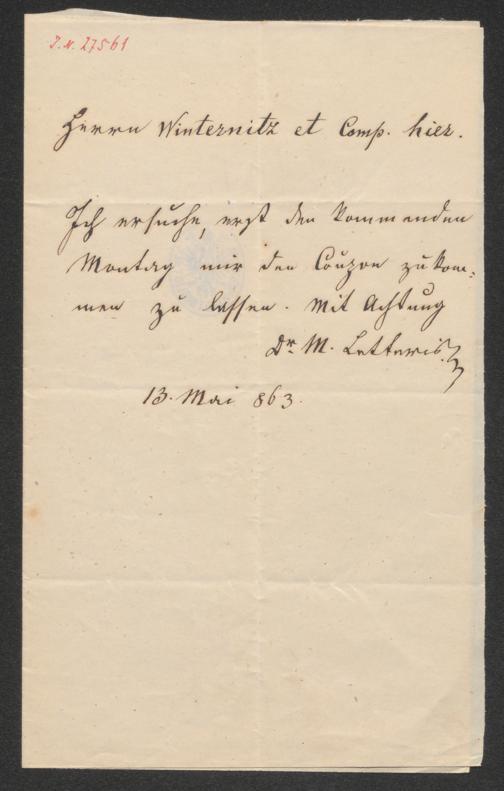 J.N. 27561
Herrn Winternitz et Comp. hier.
Ich ersuche, erst den kommenden
Montag mir den Coupon zukom-
men zu lassen. Mit Achtung
Dr. M. Letteris
13. Mai 863.